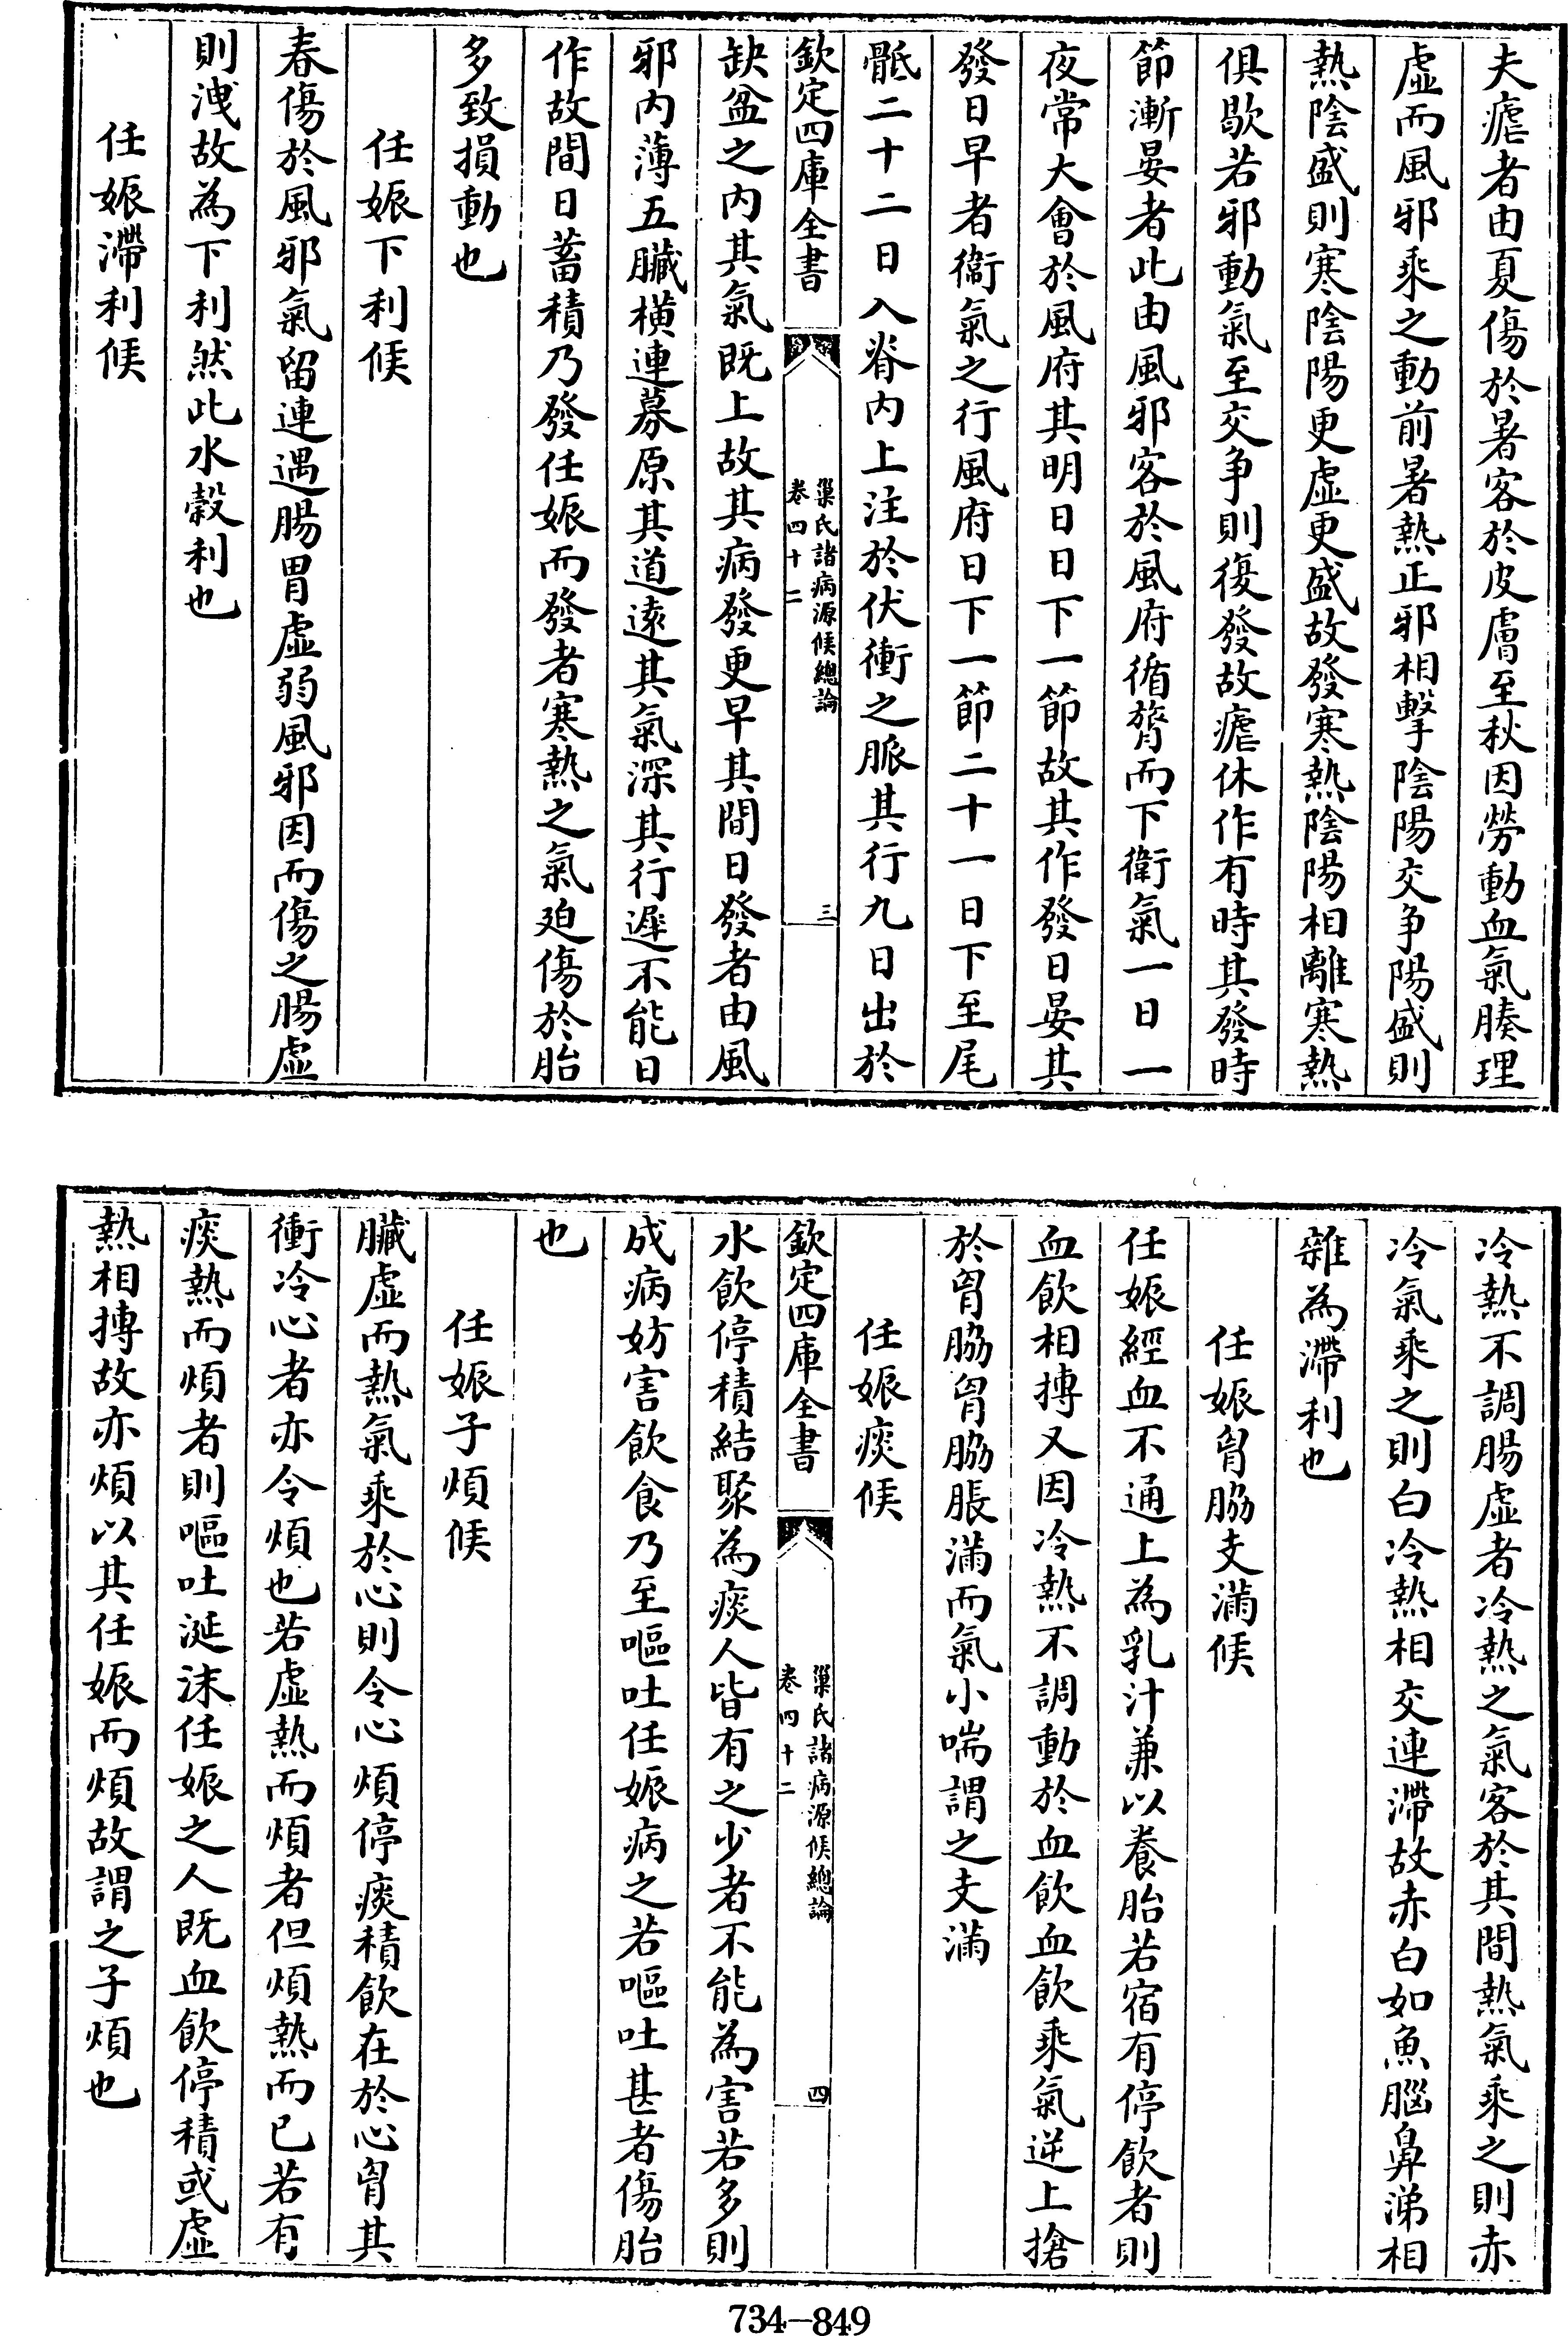 夫瘧者由夏傷於暑客於皮膚至秋因勞動血氣腠理
虛而風邪乘之動前暑熱正邪相擊陰陽交争陽盛則
熱陰盛則寒陰陽更虛更盛故發寒熱陰陽相離寒熱
俱歇若邪動氣至交争則復發故瘧休作有時其發時
節漸晏者此由風邪客於風府循膂而下衛氣一日一
夜常大會於風府其明日日下一節故其作發日晏其
發日早者衞氣之行風府日下一節二十一日下至尾
骶二十二日入脊内上注於伏衝之脈其行九日出於
欽定四庫全書
巢氏諸病源候總論
卷四十二
三
缺盆之内其氣既上故其病發更早其間日發者由風
邪内薄五臟横連募原其道遠其氣深其行遲不能日
作故間日蓄積乃發任娠而發者寒熱之氣廹傷於胎
多致損動也
任娠下利候
春傷於風邪氣留連遇腸胃虛弱風邪因而傷之腸虛
則洩故為下利然此水穀利也
任娠滯利候
冷熱不調腸虛者冷熱之氣客於其間熱氣乘之則赤
冷氣乘之則白冷熱相交連滯故赤白如魚腦鼻涕相
雜為滯利也
任娠胷脇支滿候
任娠經血不通上為乳汁兼以養胎若宿有停飲者則
血飲相搏又因冷熱不調動於血飲血飲乘氣逆上搶
於胷脇胷脇脹滿而氣小喘謂之支滿
任娠痰候
欽定四庫全書
巢氏諸病源候總論
卷四十二
四
水飲停積結聚為痰人皆有之少者不能為害若多則
成病妨害飲食乃至嘔吐任娠病之若嘔吐甚者傷胎
也
任娠子煩候
臟虛而熱氣乘於心則令心煩停痰積飲在於心胷其
衝冷心者亦令煩也若虛熱而煩者但煩熱而已若有
痰熱而煩者則嘔吐涎沫任娠之人既血飲停積或虛
熱相搏故亦煩以其任娠而煩故謂之子煩也
734-849